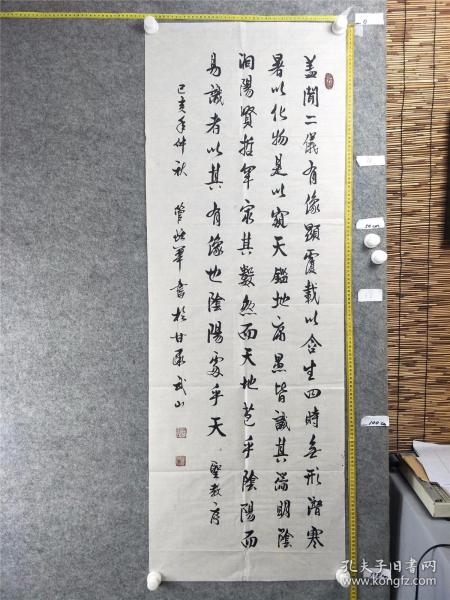 蓋聞二儀有像顯覆載以含生四時無形潛寒
暑以化物是以窺天鑑地庸愚皆識其端明陰
洞陽賢哲罕窮其數然而天地苞乎陰陽而
易識者以其有像也陰陽處乎天 聖教序
己亥年仲秋 管華書於甘肅武山
50cm
100cm
孔夫子旧书网
www.kongfz.com